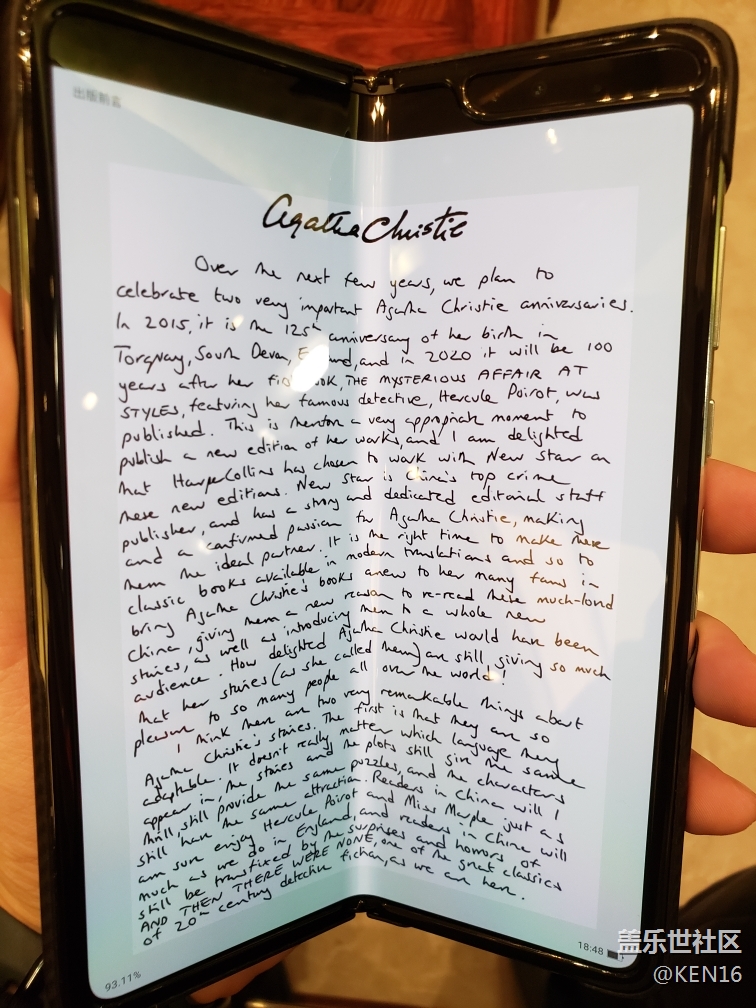 出版前言
Agatha Christie
Over the next few years, we plan to
celebrate two very important Agatha Christie anniversaries.
In 2015, it is the 125th anniversary of her birth in
Torquay, South Devon, England, and in 2020 it will be 100
years after her first book, THE MYSTERIOUS AFFAIR AT
STYLES, featuring her famous detective, Hercule Poirot, was
published. This is therefore a very appropriate moment to
publish a new edition of her works, and I am delighted
that HarperCollins has chosen to work with New Star on
these new editions. New Star is China's top crime
publisher, and has a strong and dedicated editorial staff
and a confirmed passion for Agatha Christie, making
them the ideal partner. It is the right time to make these
classic books available in modern translations and so to
bring Agatha Christie's books anew to her many fans in
China, giving them a new reason to re-read these much-loved
stories, as well as introducing them to a whole new
audience. How delighted Agatha Christie would have been
that her stories (as she called them) are still giving so much
pleasure to so many people all over the world!
I think there are two very remarkable things about
Agatha Christie's stories. The first is that they are so
adaptable. It doesn't really matter which language they
appear in, the stories and the plots still give the same
thrill, still provide the same puzzles, and the characters
still have the same attraction. Readers in China will I
am sure enjoy Hercule Poirot and Miss Marple just as
much as we do in England, and readers in China will
still be transfixed by the surprises and horrors of
AND THEN THERE WERE NONE, one of the great classics
of 20th century detective fiction, as we are here.
93.11%
18:48
盖乐世社区
@KEN16